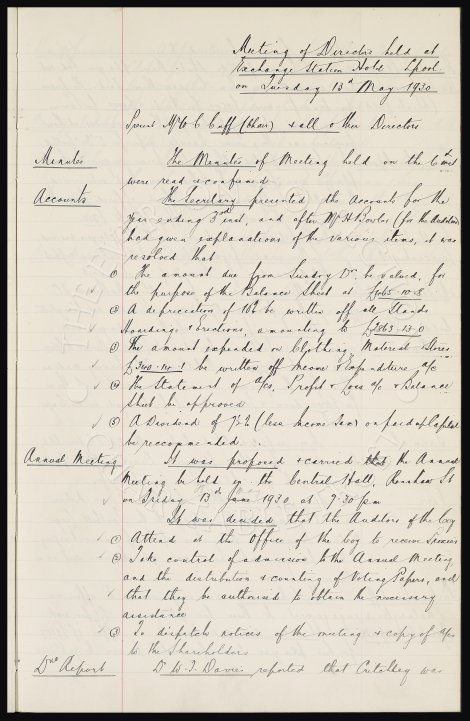 Meeting of Directors held at
Exchange Station Hotel L'pool
on Tuesday 13th May 1930
Present Mr W C Cuff (Chair) & all other Directors
Minutes
The Minutes of Meeting held on the 6th inst
were read & confirmed
Accounts
The Secretary presented the Accounts for the
year ending 3rd inst, and after Mr H Bowler (for the Auditors)
had given explanations of the various items, it was
resolved that
① The amount due from Sundry Drs be valued, for
the purpose of the Balance Sheet at £965-10-8
② A depreciation of 10% be written off all Stands
Hoardings & Erections, amounting to £2863-13-0
③ The amount expended on Clothing, Material & Stores
£340-14-1 be written off Income & Expenditure a/c
④ The Statement of a/cs, Profit & Loss a/c & Balance
Sheet be approved
⑤ A Dividend of 7½% (less Income Tax) on paid up Capital
be reccommended
Annual Meeting
It was proposed & carried that the Annual
Meeting be held in the Central Hall, Renshaw St
on Friday 13th June 1930 at 7.30pm
It was decided that the Auditors of the Coy
① Attend at the Office of the Coy to receive Proxies
② Take control of admission to the Annual Meeting
and the distribution & counting of Voting Papers, and
that they be authorised to obtain the necessary
assistance
③ To dispatch notices of the meeting & copy of a/cs
to the Shareholders
Drs Report
Dr W.J. Davies reported that Critchley was